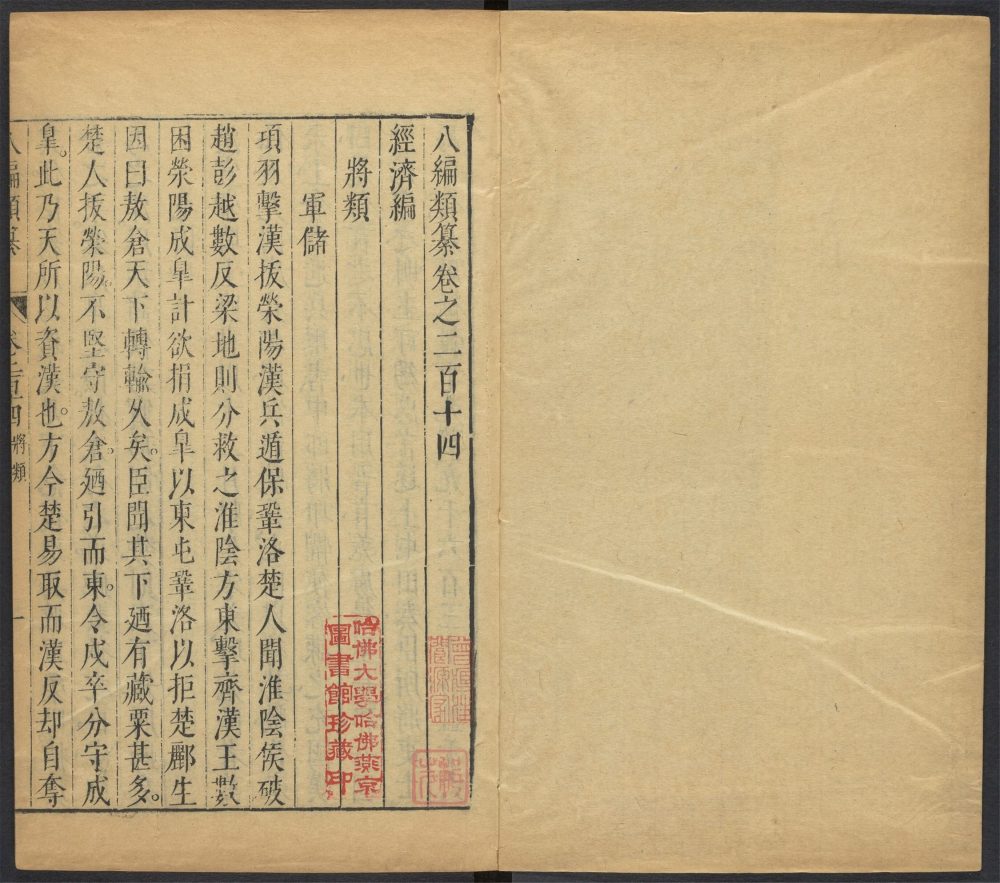 八編類纂卷之二百十四
經濟編
將類
軍儲
項羽擊漢拔滎陽漢兵遁保鞏洛楚人聞淮陰侯破
趙彭越數反梁地則分救之淮陰方東擊齊漢王數
困滎陽成皐計欲捐成皐以東屯鞏洛以拒楚酈生
因曰敖倉天下轉輸久矣。臣聞其下廼有藏粟甚多。
楚人拔滎陽。不堅守敖倉。廼引而東。令戍卒分守成
皐。此乃天所以資漢也。方今楚易取而漢反却自奪
八編類纂
將類
一
哈佛大學哈佛燕京
圖書館珍藏印